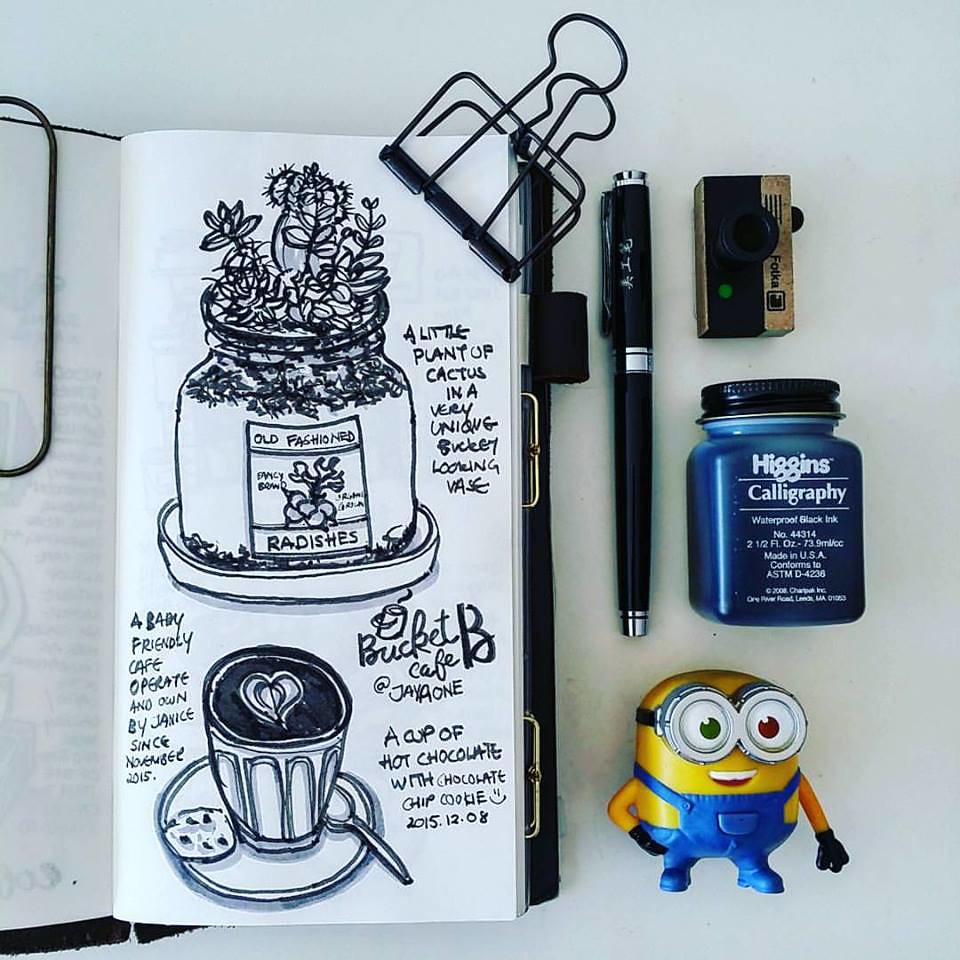 A LITTLE
PLANT OF
CACTUS
IN A
VERY
UNIQUE
BUCKET
LOOKING
VASE
OLD FASHIONED
FANCY
BRAND
ORGANIC
GROWN
RADISHES
Bucket B
cafe
@JAYAONE
A BABY
FRIENDLY
CAFE
OPERATE
AND OWN
BY JANICE
SINCE
NOVEMBER
2015.
A CUP OF
HOT CHOCOLATE
WITH CHOCOLATE
CHIP COOKIE
2015.12.08
美工笔
Fotka
Higgins™
Calligraphy
Waterproof Black Ink
No. 44314
2 1/2 Fl. Oz.- 73.9ml/cc
Made in U.S.A.
Conforms to
ASTM D-4236
© 2008, Chartpak Inc.
One River Road, Leeds, MA 01053